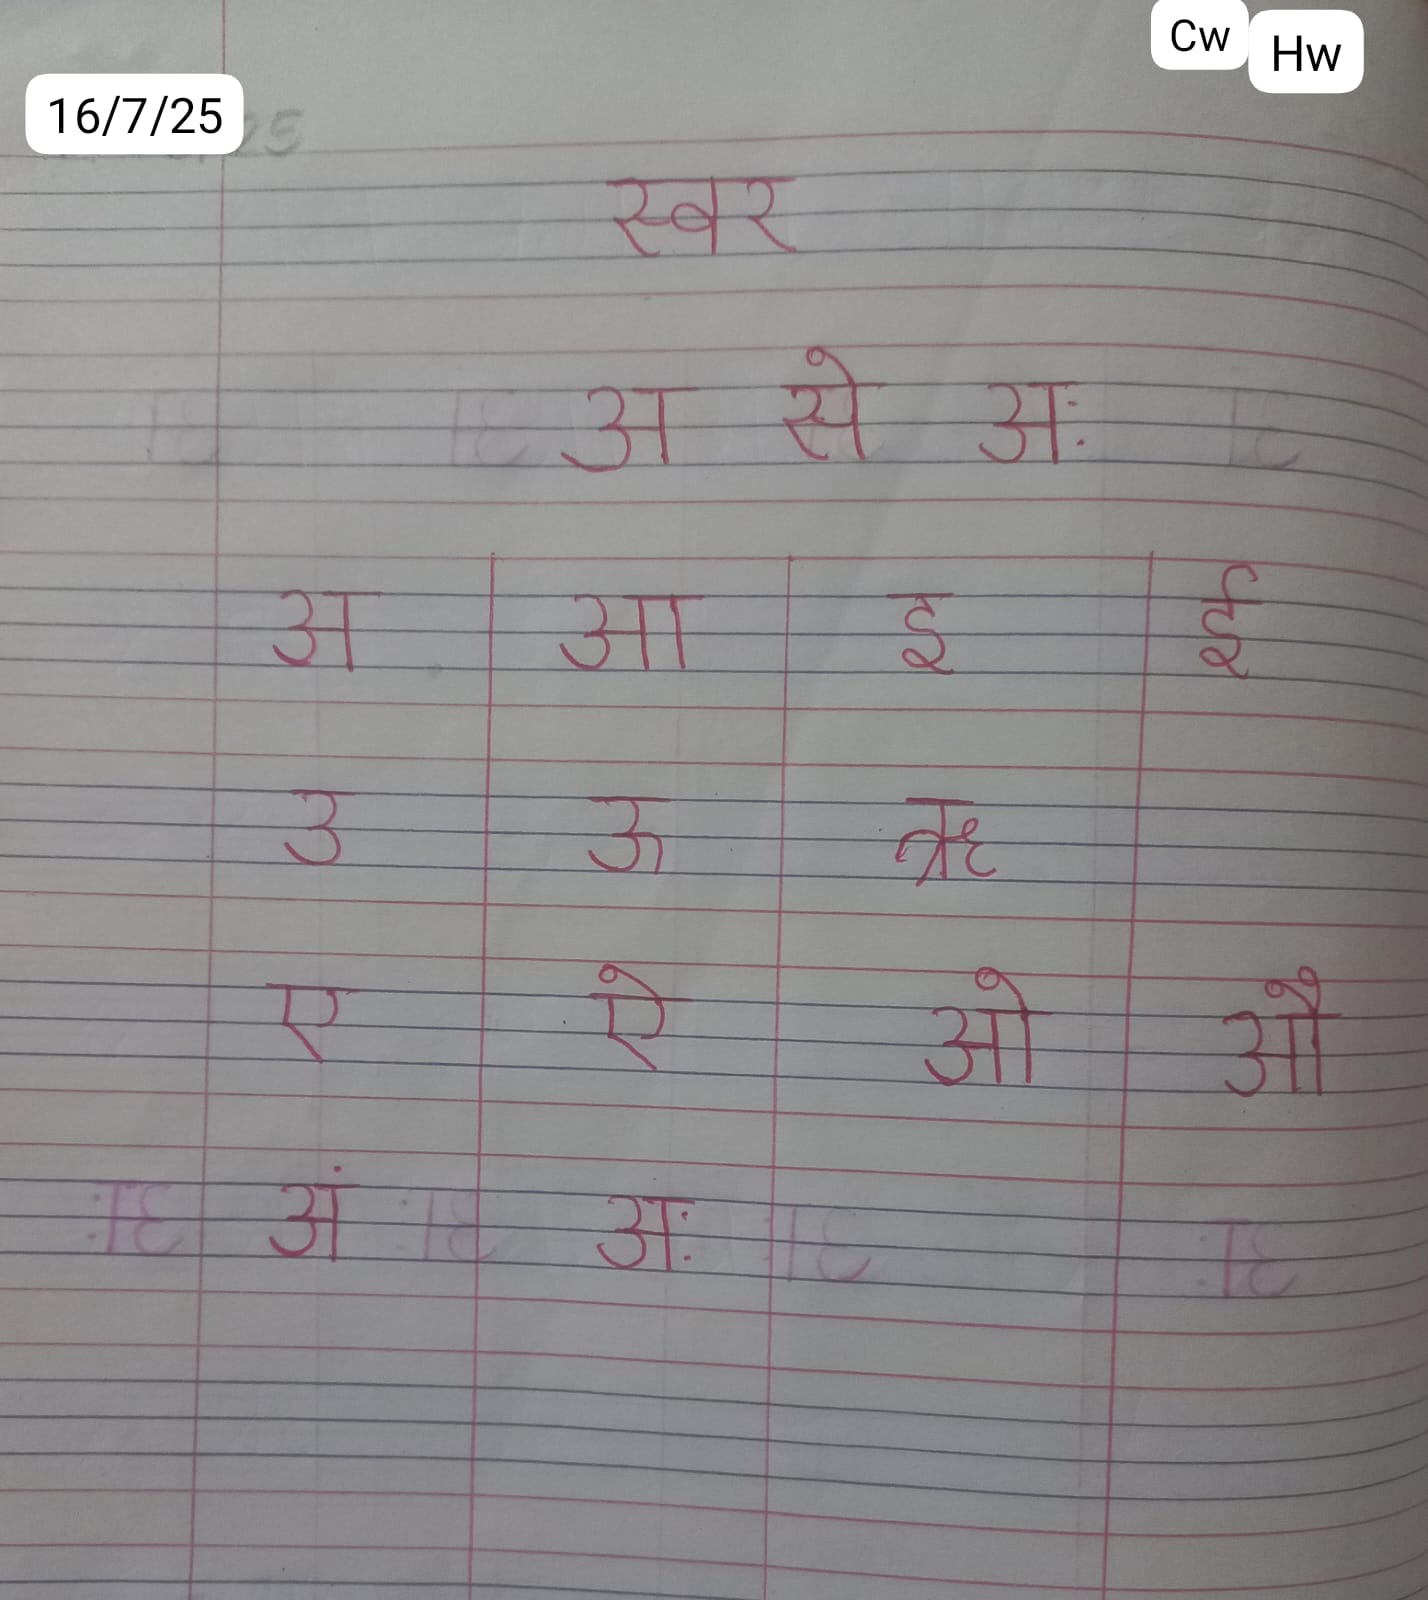 Cw Hw
16/7/25
स्वर
अ से अः
अ आ इ ई
उ ऊ ऋ
ए ऐ ओ औ
अं अः